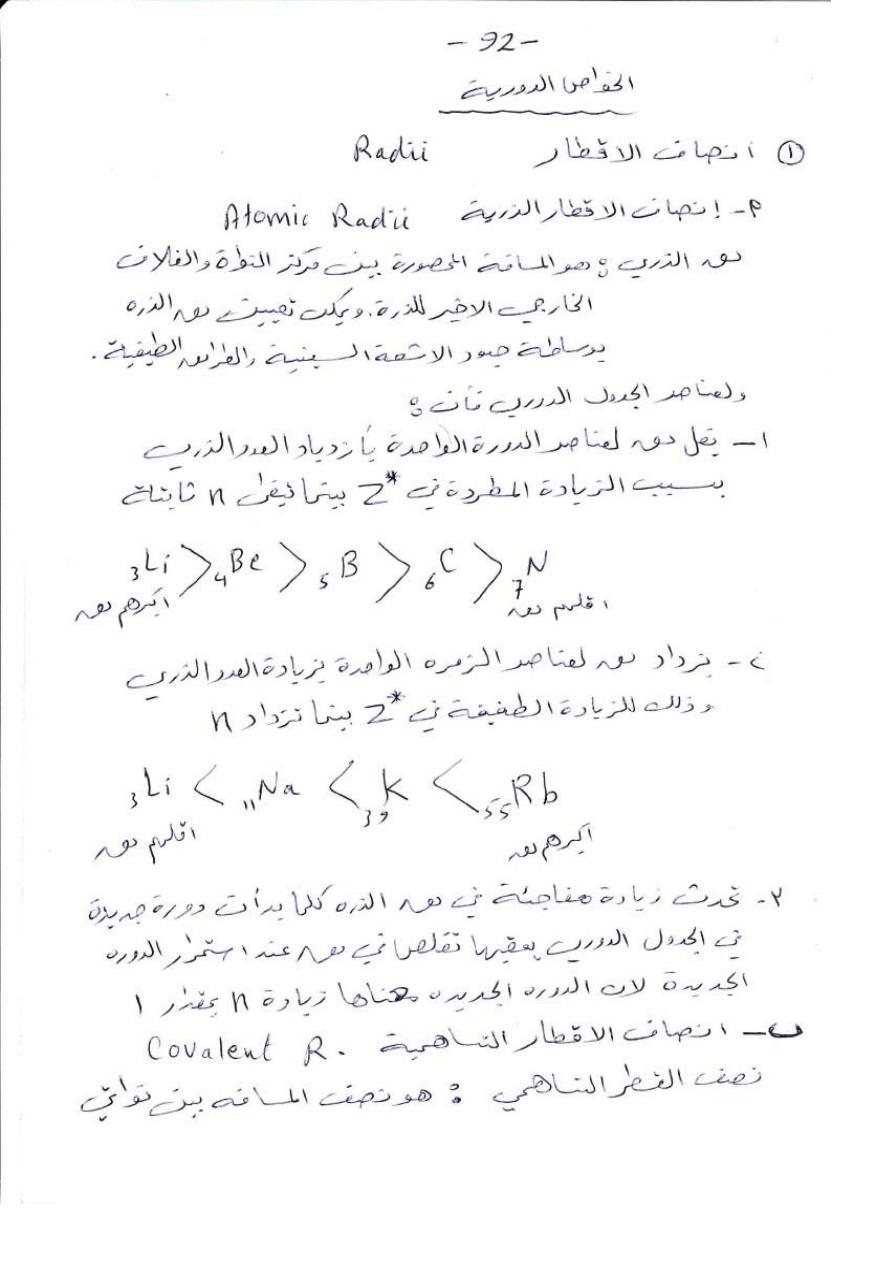 - 92 -
الخواص الدورية
① انصاف الاقطار Radii
أ- إنصاف الاقطار الذرية Atomic Radii
نق الذري : هو المسافة المحصورة بين مركز النواة والغلاف
الخارجي الاخير للذرة. ويمكن تعيين نق الذره
بوساطة حيود الاشعة السينية والطرائق الطيفية.
ولعناصر الجدول الدوري فأن :
١- يقل نق لعناصر الدورة الواحدة بأزدياد العدد الذري
بسبب الزيادة المطردة في Z* بينما تبقى n ثابتة
₃Li > ₄Be > ₅B > ₆C > ₇N
اكبرهم نق اقلهم نق
٢- يزداد نق لعناصر الزمره الواحدة بزيادة العدد الذري
وذلك للزيادة الطفيفة في Z* بينما تزداد n
₃Li < ₁₁Na < ₃₉K < ₅₅Rb
اقلهم نق اكبرهم نق
٣- تحدث زيادة مفاجئة في نق الذره كلما بدأت دورة جديدة
في الجدول الدوري يعقبها تقلص في نق عند استمرار الدوره
الجديدة لان الدوره الجديده معناها زيادة n بمقدار 1
ب- انصاف الاقطار التساهمية Covalent R.
نصف القطر التساهمي : هو نصف المسافه بين نواتي